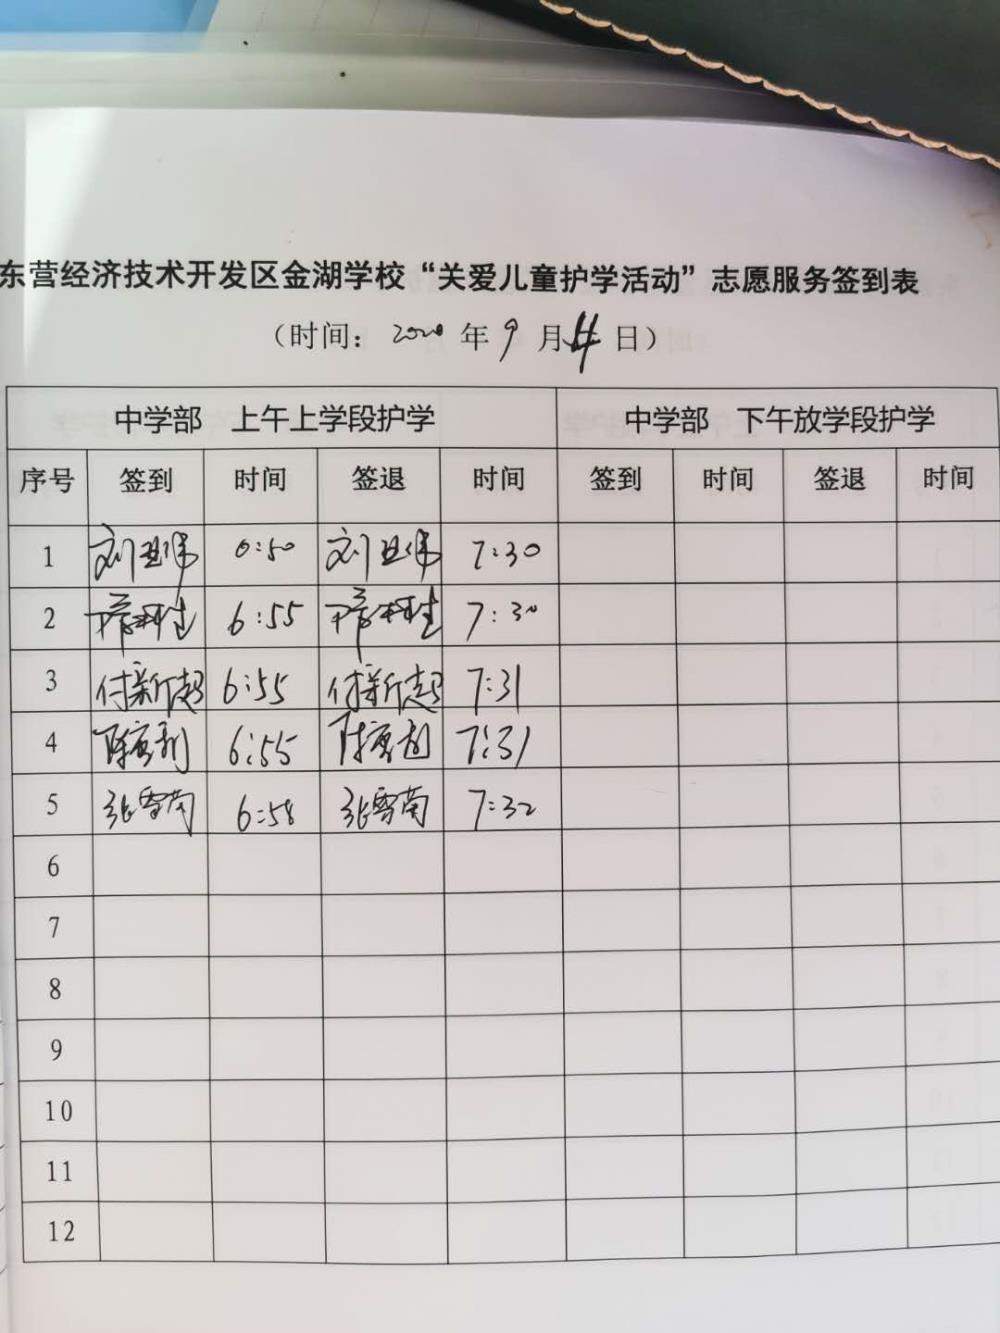 东营经济技术开发区金湖学校“关爱儿童护学活动”志愿服务签到表
（时间：2020 年 9 月 日）
中学部 上午上学段护学 中学部 下午放学段护学
序号 签到 时间 签退 时间 签到 时间 签退 时间
1 刘亚伟 6:50 刘亚伟 7:30
2 6:55 7:30
3 付新超 6:55 付新超 7:31
4 陈 6:55 陈 7:31
5 张雪菊 6:58 张雪菊 7:32
6
7
8
9
10
11
12